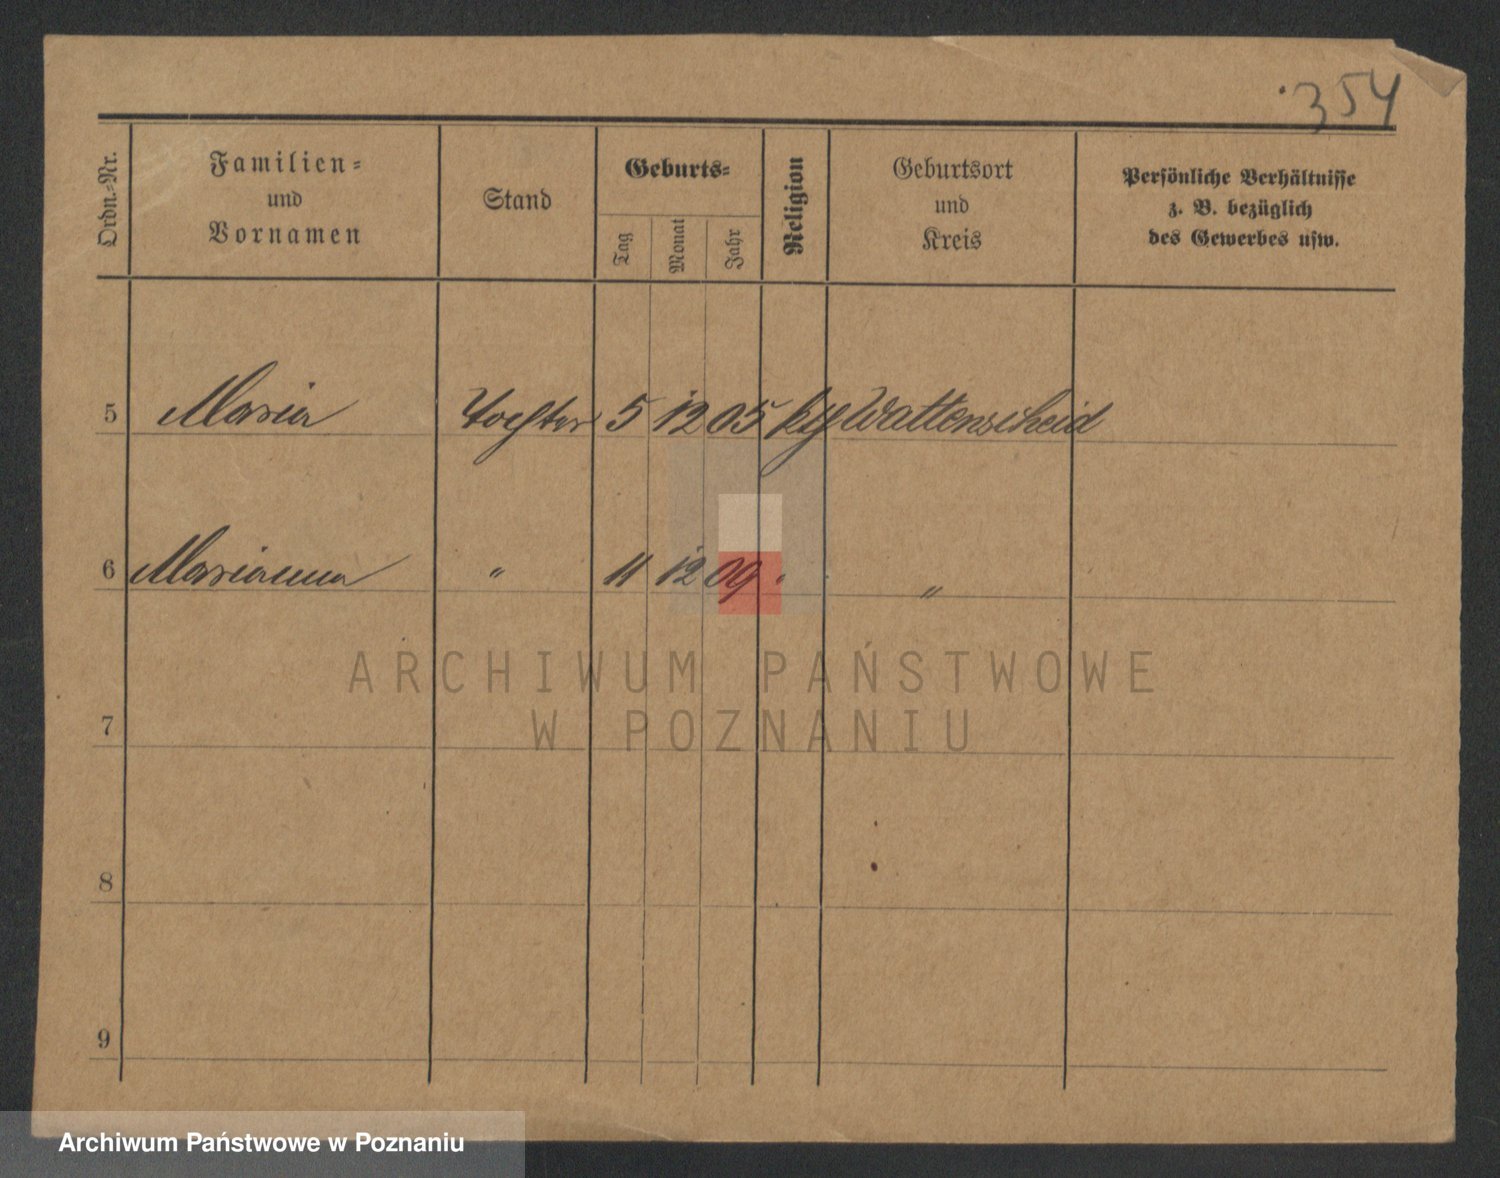 354
Ordn.-Nr.
Familien-
und
Vornamen
Stand
Geburts-
Tag
Monat
Jahr
Religion
Geburtsort
und
Kreis
Persönliche Verhältnisse
z. B. bezüglich
des Gewerbes usw.
5 Maria Tochter 5 12 05 kth Wattenscheid
6 Marianna " 11 12 09 " "
ARCHIWUM PAŃSTWOWE
W POZNANIU
7
8
9
Archiwum Państwowe w Poznaniu